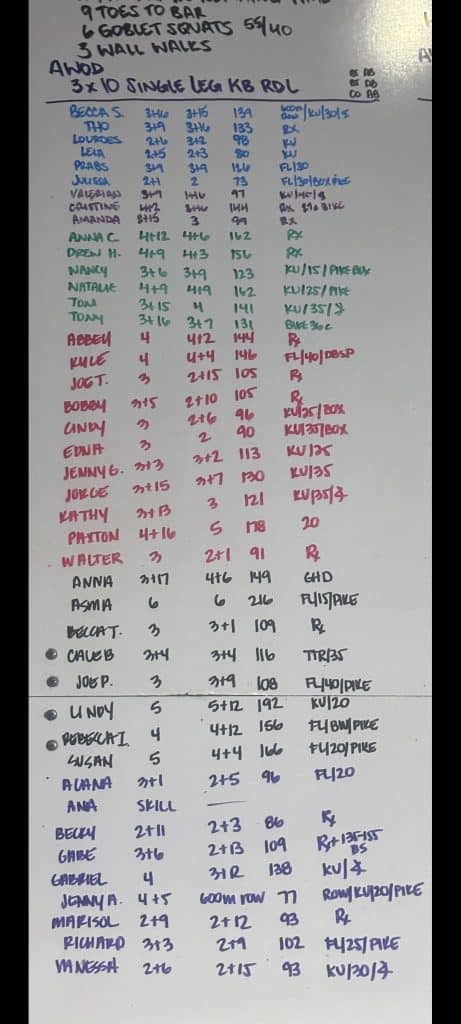 9 TOES TO BAR
6 GOBLET SQUATS 55/40
3 WALL WALKS
AWOD
3 x 10 SINGLE LEG KB RDL
BECCA S. 3+16 3+15 139
THO 3+9 3+16 133 RX
LOURDES 2+16 3+2 98 KU
LEIA 2+5 2+3 80 KU
PRABS 3+9 3+9 126 FL/30
JULISSA 2+1 2 73 FL/30/BOX PIKE
VALERIAN 3+9 1+16 97
CRISTINE 144 RX
AMANDA 2+15 3 99 RX
ANNA C. 4+12 4+6 162 RX
DREW H. 4+9 4+3 156 RX
NANCY 3+6 3+9 123 KU/15/PIKE BOX
NATALIE 4+9 4+9 162 KU/25/PIKE
TOM 3+15 4 141 KU/35/
TONY 3+16 3+7 131 BIKE 36c
ABBEY 4 4+2 144 Rx
KYLE 4 4+4 146 FL/40/DBSP
JOE T. 3 2+15 105 Rx
BOBBY 3+5 2+10 105 Rx
CINDY 3 2+6 96 KU/25/BOX
EDNA 3 2 90 KU/35/BOX
JENNY G. 3+3 3+2 113 KU/25
JORGE 3+15 3+7 130 KU/35
KATHY 3+13 3 121 KU/35/
PAXTON 4+16 5 178 20
WALTER 3 2+1 91 Rx
ANNA 3+17 4+6 149 GHD
ASMA 6 6 216 FL/15/PIKE
BECCA T. 3 3+1 109 Rx
CALEB 3+4 3+4 116 TTR/35
JOE P. 3 3+9 108 FL/40/PIKE
LINDY 5 5+12 192 KU/20
REBECCA I. 4 4+12 156 FL/8W/PIKE
SUSAN 5 4+4 166 FL/20/PIKE
ALANA 3+1 2+5 96 FL/20
ANA SKILL —
BECKY 2+11 2+3 86 Rx
GABE 3+6 2+13 109 Rx+ 135-155
BS
GABRIEL 4 3+12 138 KU/
JENNY A. 4+5 600m ROW 77 ROW/KU/20/PIKE
MARISOL 2+9 2+12 93 Rx
RICHARD 3+3 2+9 102 FL/25/PIKE
VANESSA 2+6 2+15 93 KU/30/